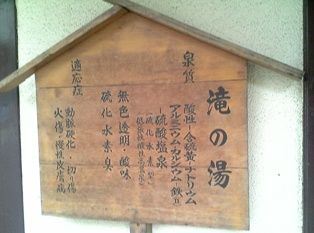 滝の湯
泉質
酸性-含硫黄-ナトリウム
アルミニウム・カルシウム・鉄Ⅱ
-硫酸塩泉
(硫化水素型)
無色透明・酸味
硫化水素臭
適応症
動脈硬化・切り傷
火傷・慢性皮膚病